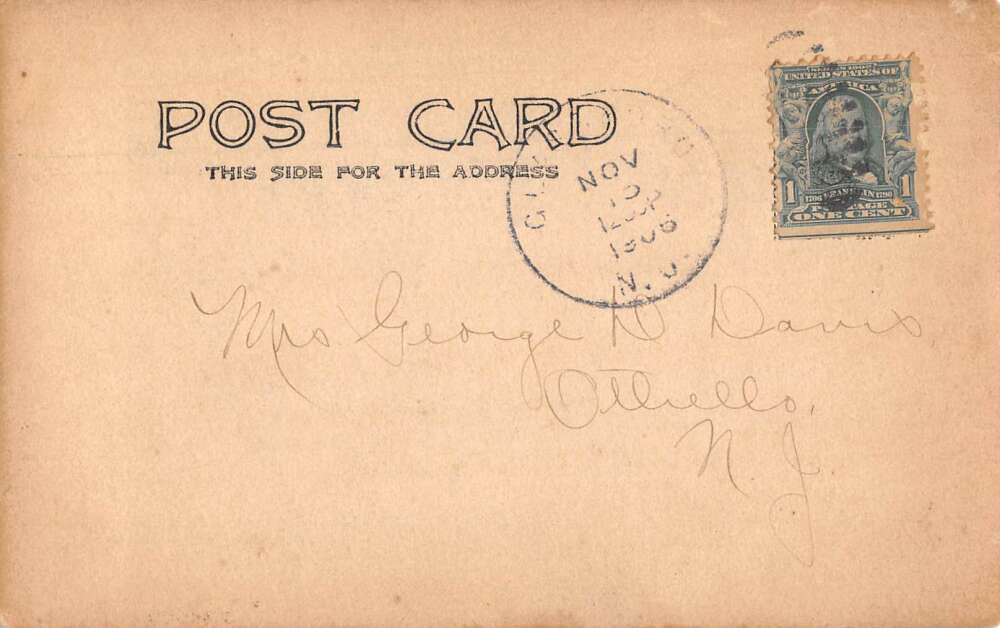 POST CARD
THIS SIDE FOR THE ADDRESS
NOV
10
1906
N.J.
SERIES 1902
UNITED STATES OF
AMERICA
1 1706 FRANKLIN 1790 1
POSTAGE
ONE CENT
Mrs George D Davis
Othello,
N J.